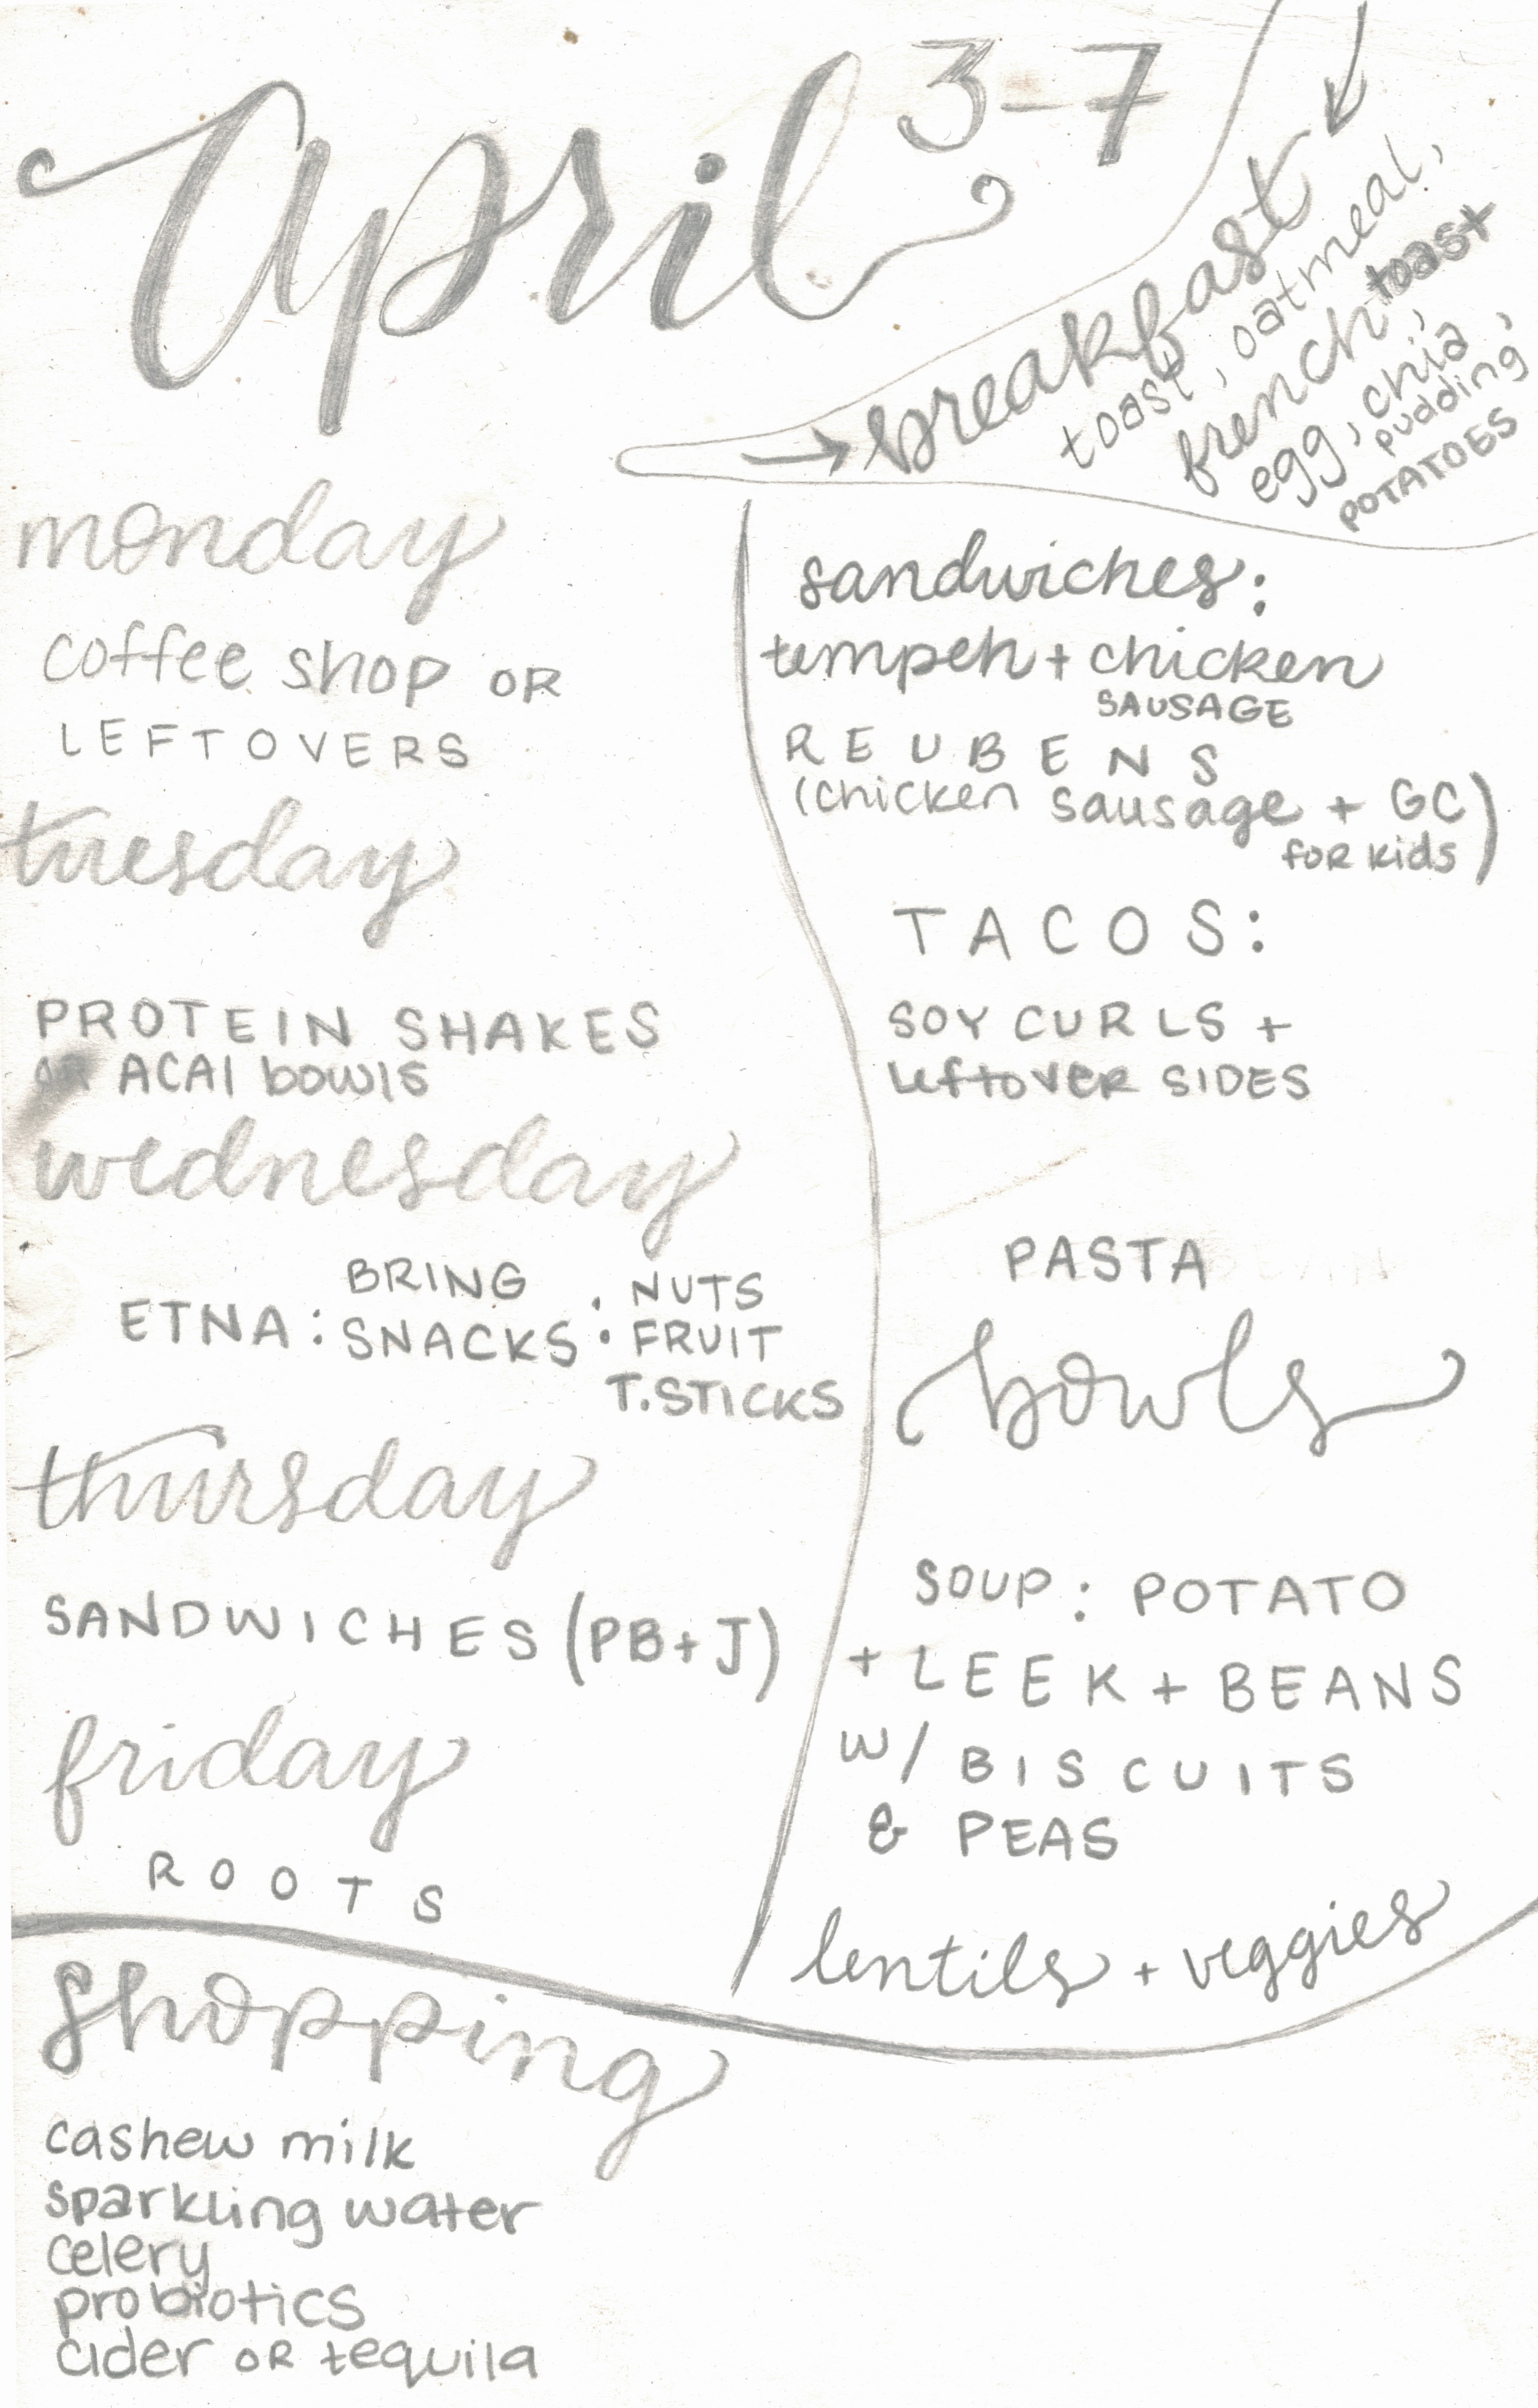 april 3-7
breakfast
toast, oatmeal,
french toast,
egg, chia
pudding,
POTATOES
monday
coffee shop OR
LEFTOVERS
sandwiches:
tempeh + chicken
SAUSAGE
REUBENS
(chicken sausage + GC
for kids)
tuesday
PROTEIN SHAKES
OR ACAI bowls
TACOS:
SOY CURLS +
leftover SIDES
wednesday
ETNA: BRING
SNACKS: NUTS
FRUIT
T.STICKS
PASTA
bowls
thursday
SANDWICHES (PB+J)
SOUP: POTATO
+ LEEK + BEANS
w/ BISCUITS
& PEAS
friday
ROOTS
lentils + veggies
shopping
cashew milk
sparkling water
celery
probiotics
cider OR tequila